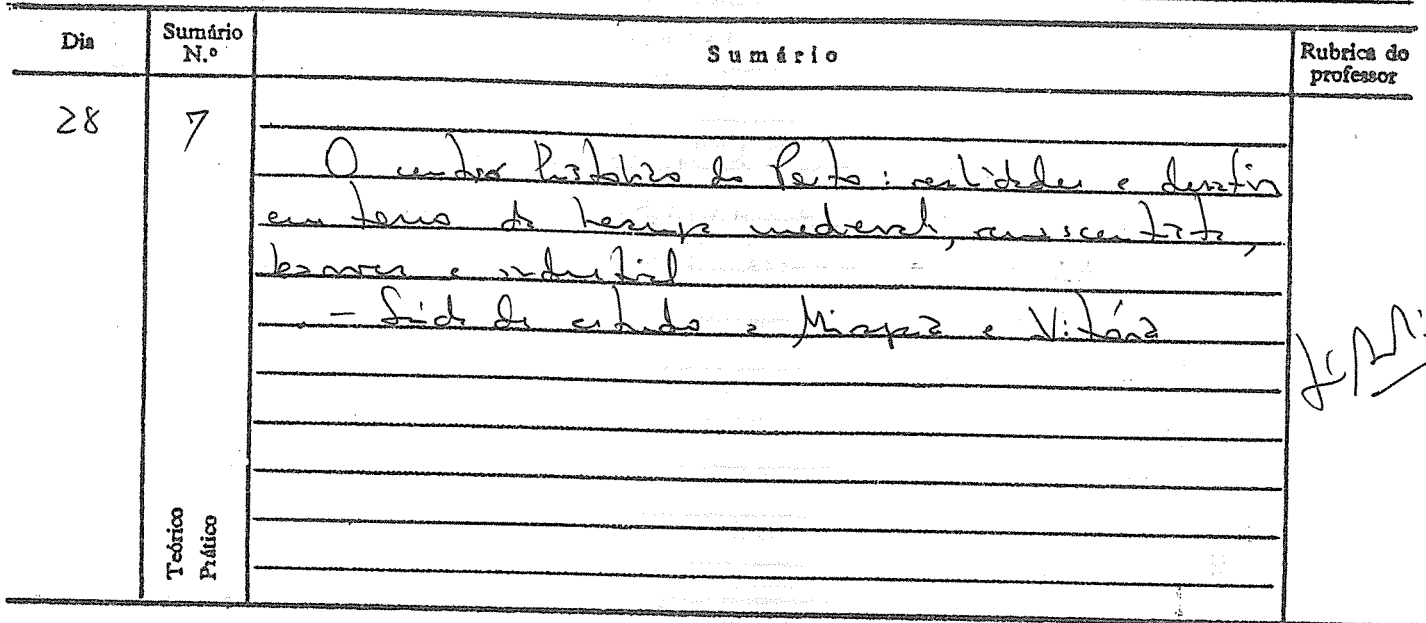 Dia
Sumário N.º
Sumário
Rubrica do professor
28
7
O centro histórico do Porto: realidades e desafios
em termos de herança medieval, renascentista,
barroca e industrial
- Saída de estudo a Miragaia e Vitória
Teórico
Prático